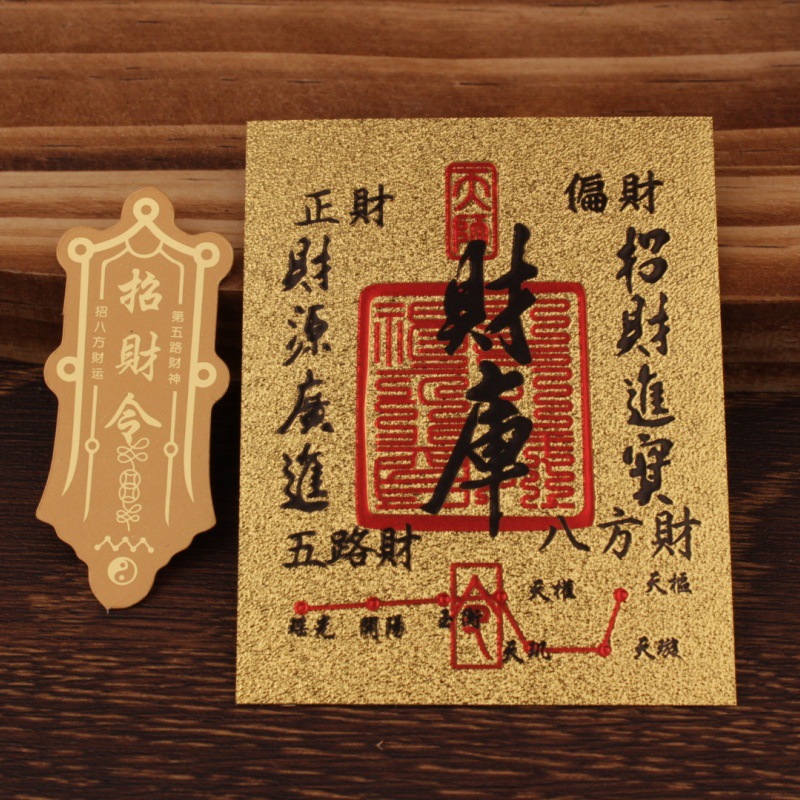 招財令
第五路财神
招八方财运
正財
偏財
財庫
招財進寶
財源廣進
五路財
八方財
天樞
天璇
天璣
天權
玉衡
開陽
瑤光
令